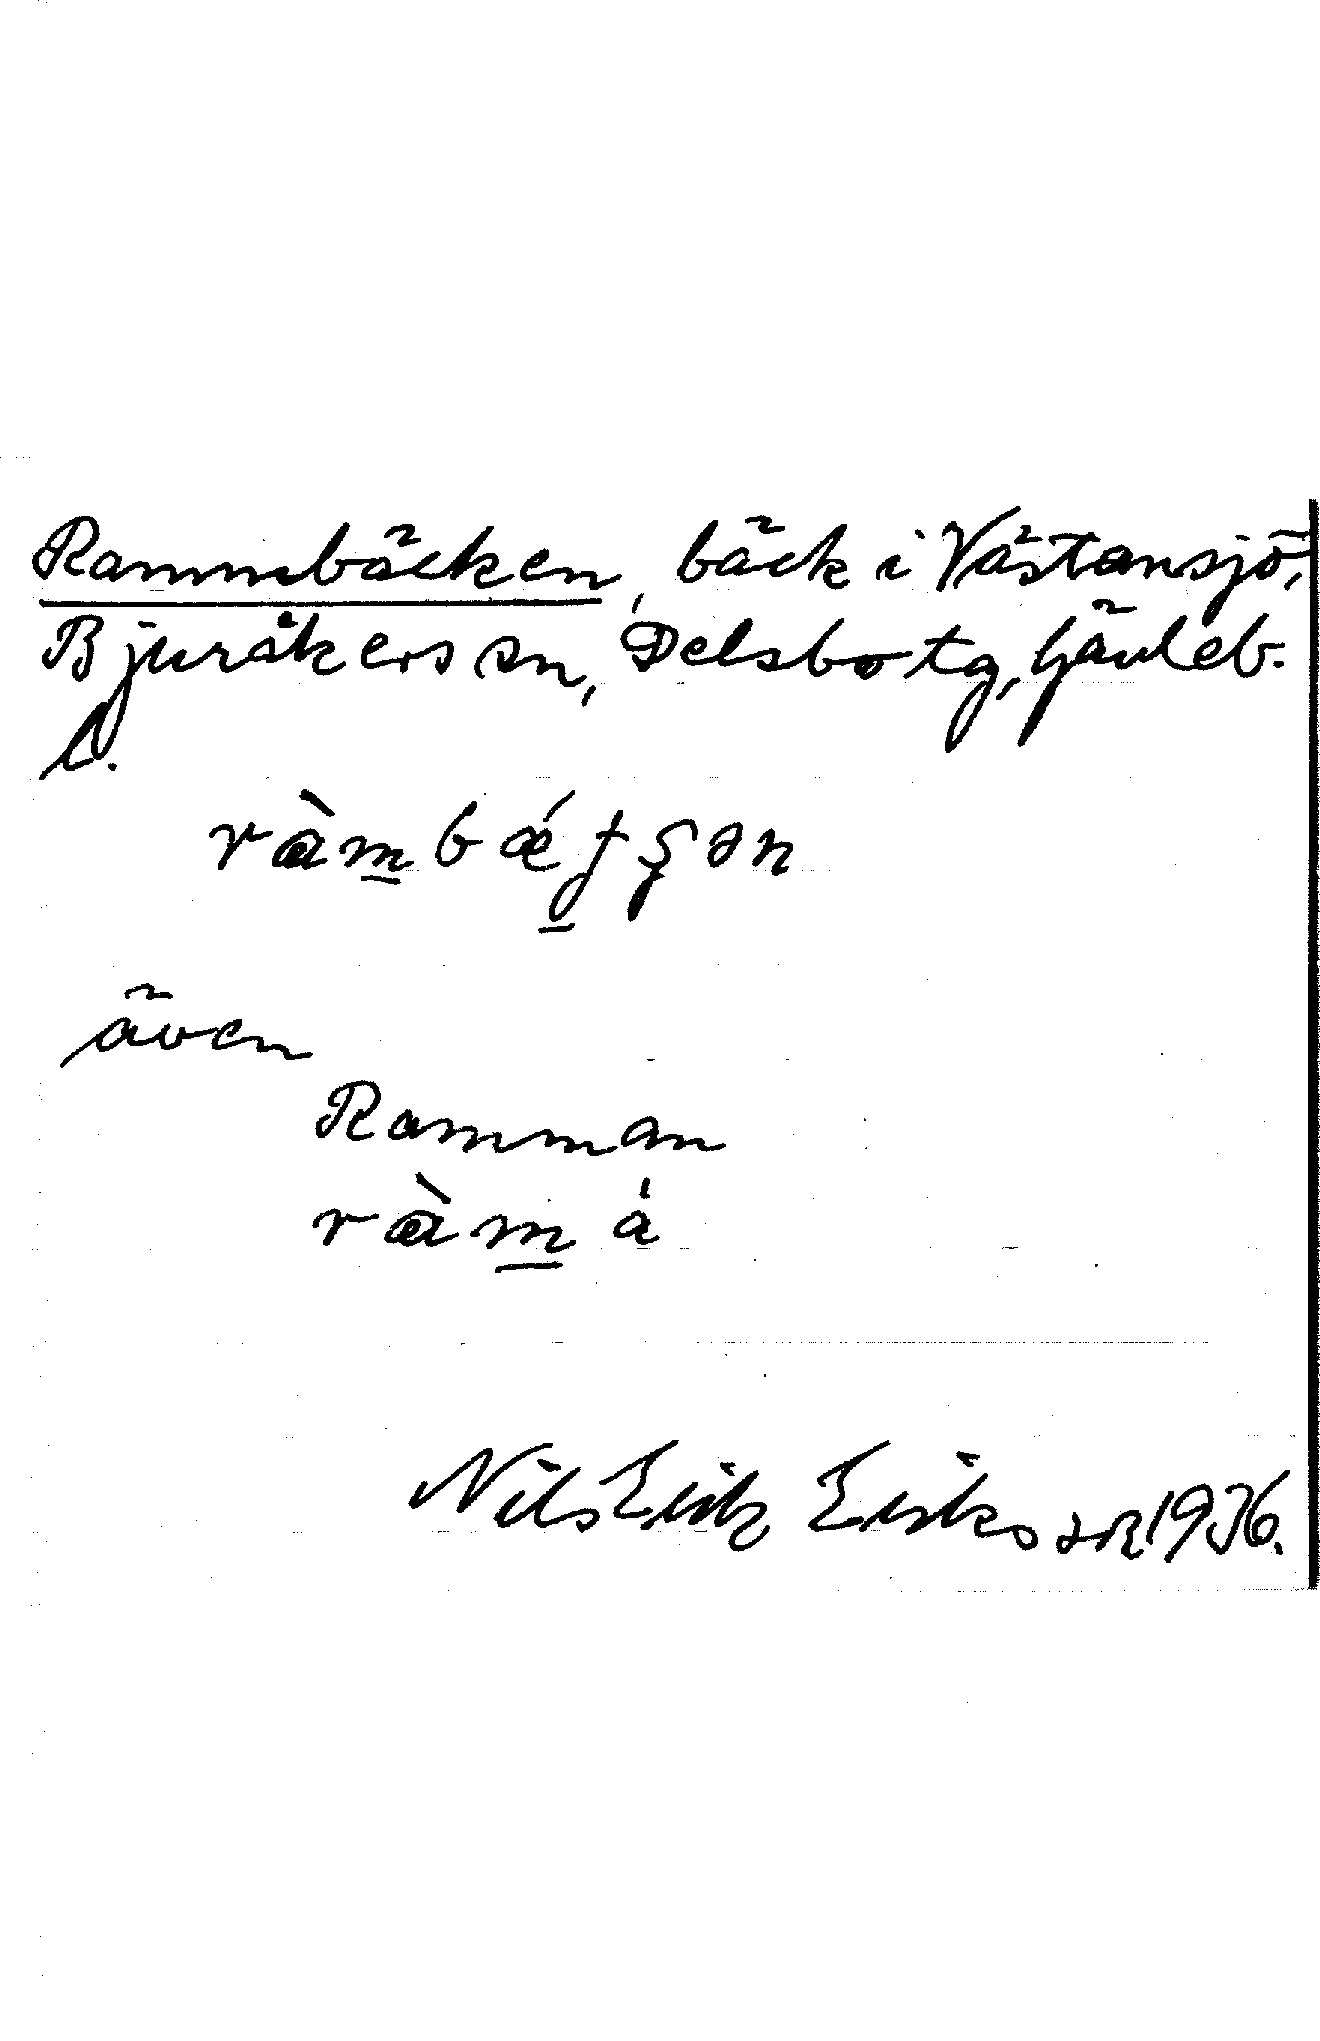 Rammbäcken, bäck i Västansjö,
Bjuråkers sn, Delsbo tg, Gävleb.
l.
även
Ramman
Nils Erik Eriksson 1936.